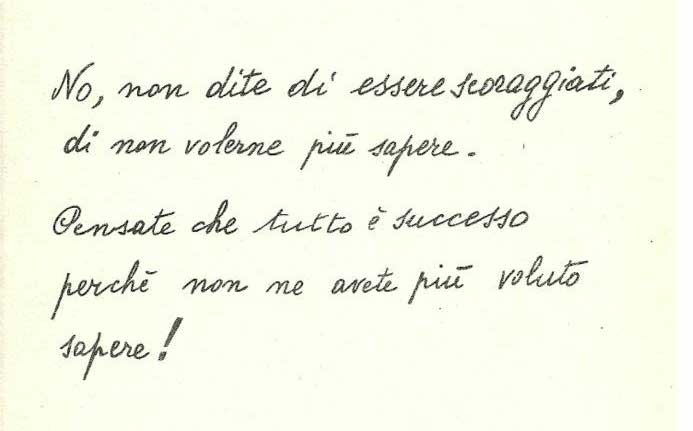 No, non dite di essere scoraggiati,
di non volerne più sapere.
Pensate che tutto è successo
perchè non ne avete più voluto
sapere!